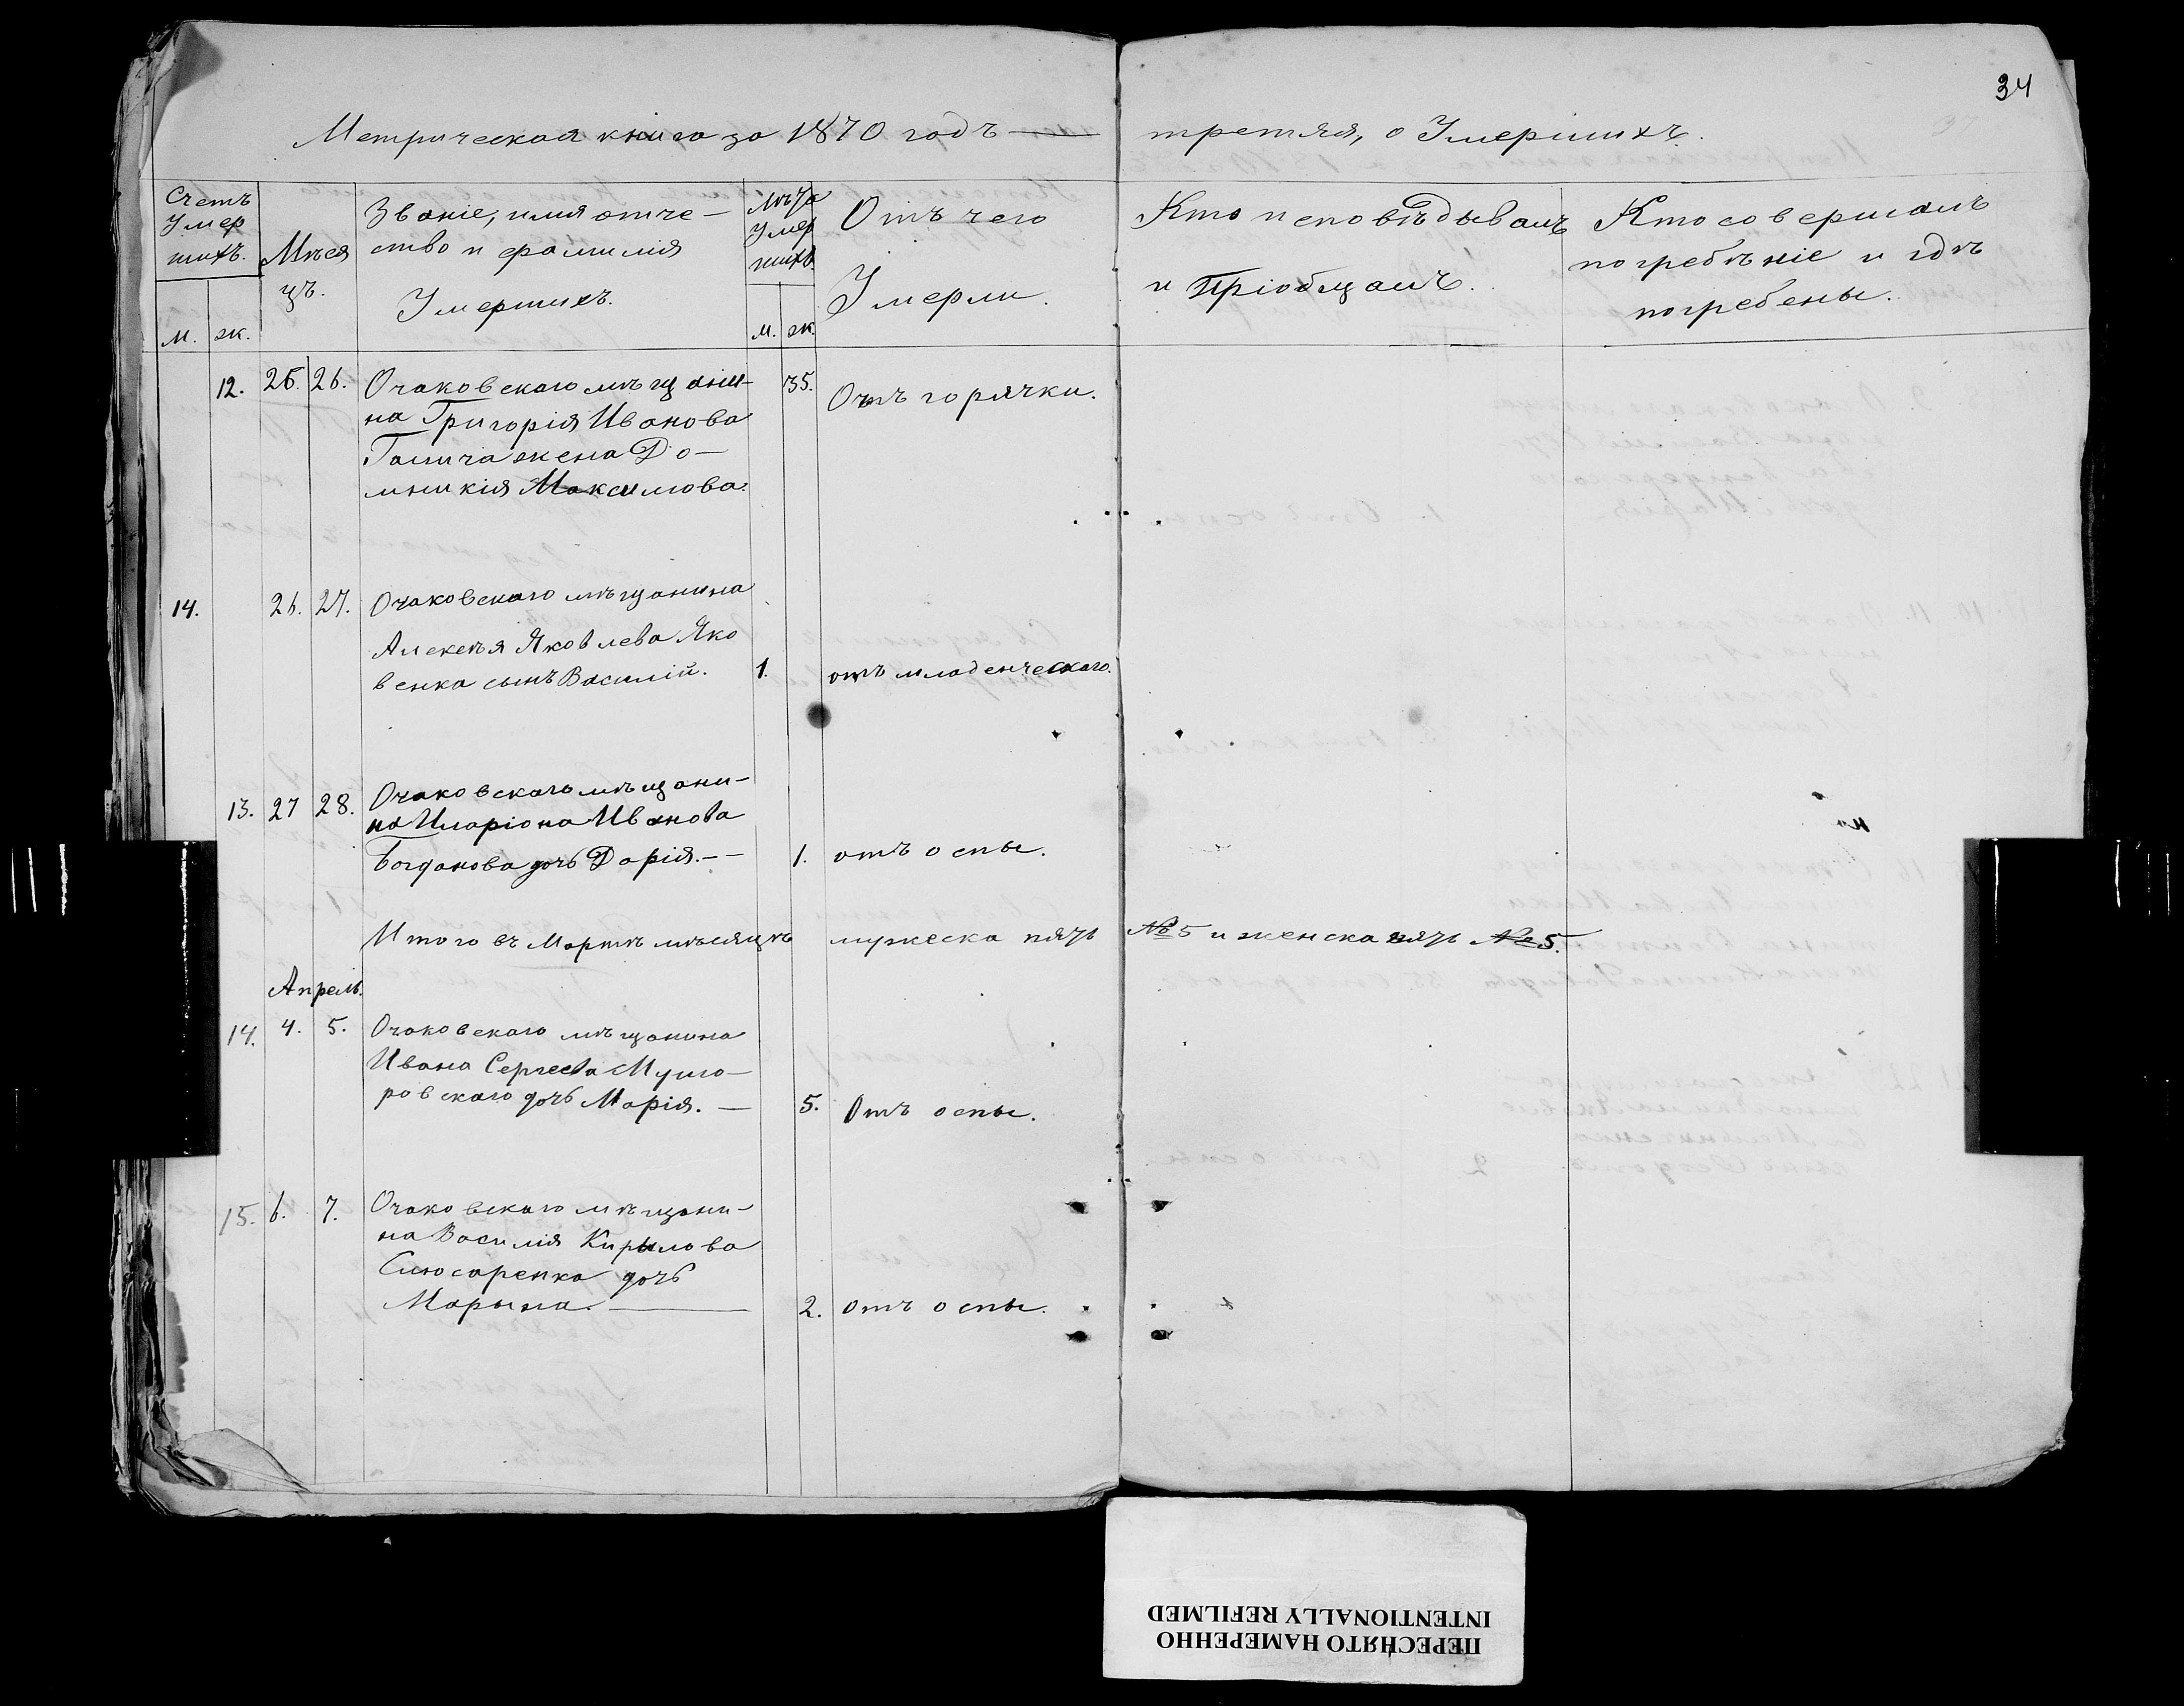 34
Метрическая книга за 1870 годъ — третяя, о Умершихъ.
Счетъ Умер шихъ.
М. ж.
Мѣся цъ.
Званіе, имя отче-
ство и фамилія
Умершихъ.
Лѣта Умер шихъ.
М. ж.
Отъ чего
Умерли.
Кто исповѣдывалъ
и Пріобщалъ.
Кто совершалъ
погребѣніе и гдѣ
погребены.
12. 25. 26. Очаковскаго мѣщани- 35. Отъ горячки.
на Григорія Иванова
Галича жена До-
мникія Максимова.
14. 26. 27. Очаковскаго мѣщанина
Алексѣя Яковлева Яко
венка сынъ Василій. 1. отъ младенческаго.
13. 27 28. Очаковскаго мѣщани-
на Иларіона Иванова
Богданова дочь Дарія.-- 1. отъ оспы.
Итого въ Мартѣ мѣсяцѣ мужеска пять № 5 и женска пять № 5.
Апрель.
14. 4. 5. Очаковскаго мѣщанина
Ивана Сергеева
ровскаго дочь Марія. — 5. Отъ оспы.
15. 6. 7. Очаковскаго мѣщани-
на Василія Кирылова
Слюсаренка дочь
Марына. — 2. отъ оспы.
ПЕРЕСНЯТО НАМЕРЕННО
INTENTIONALLY REFILMED